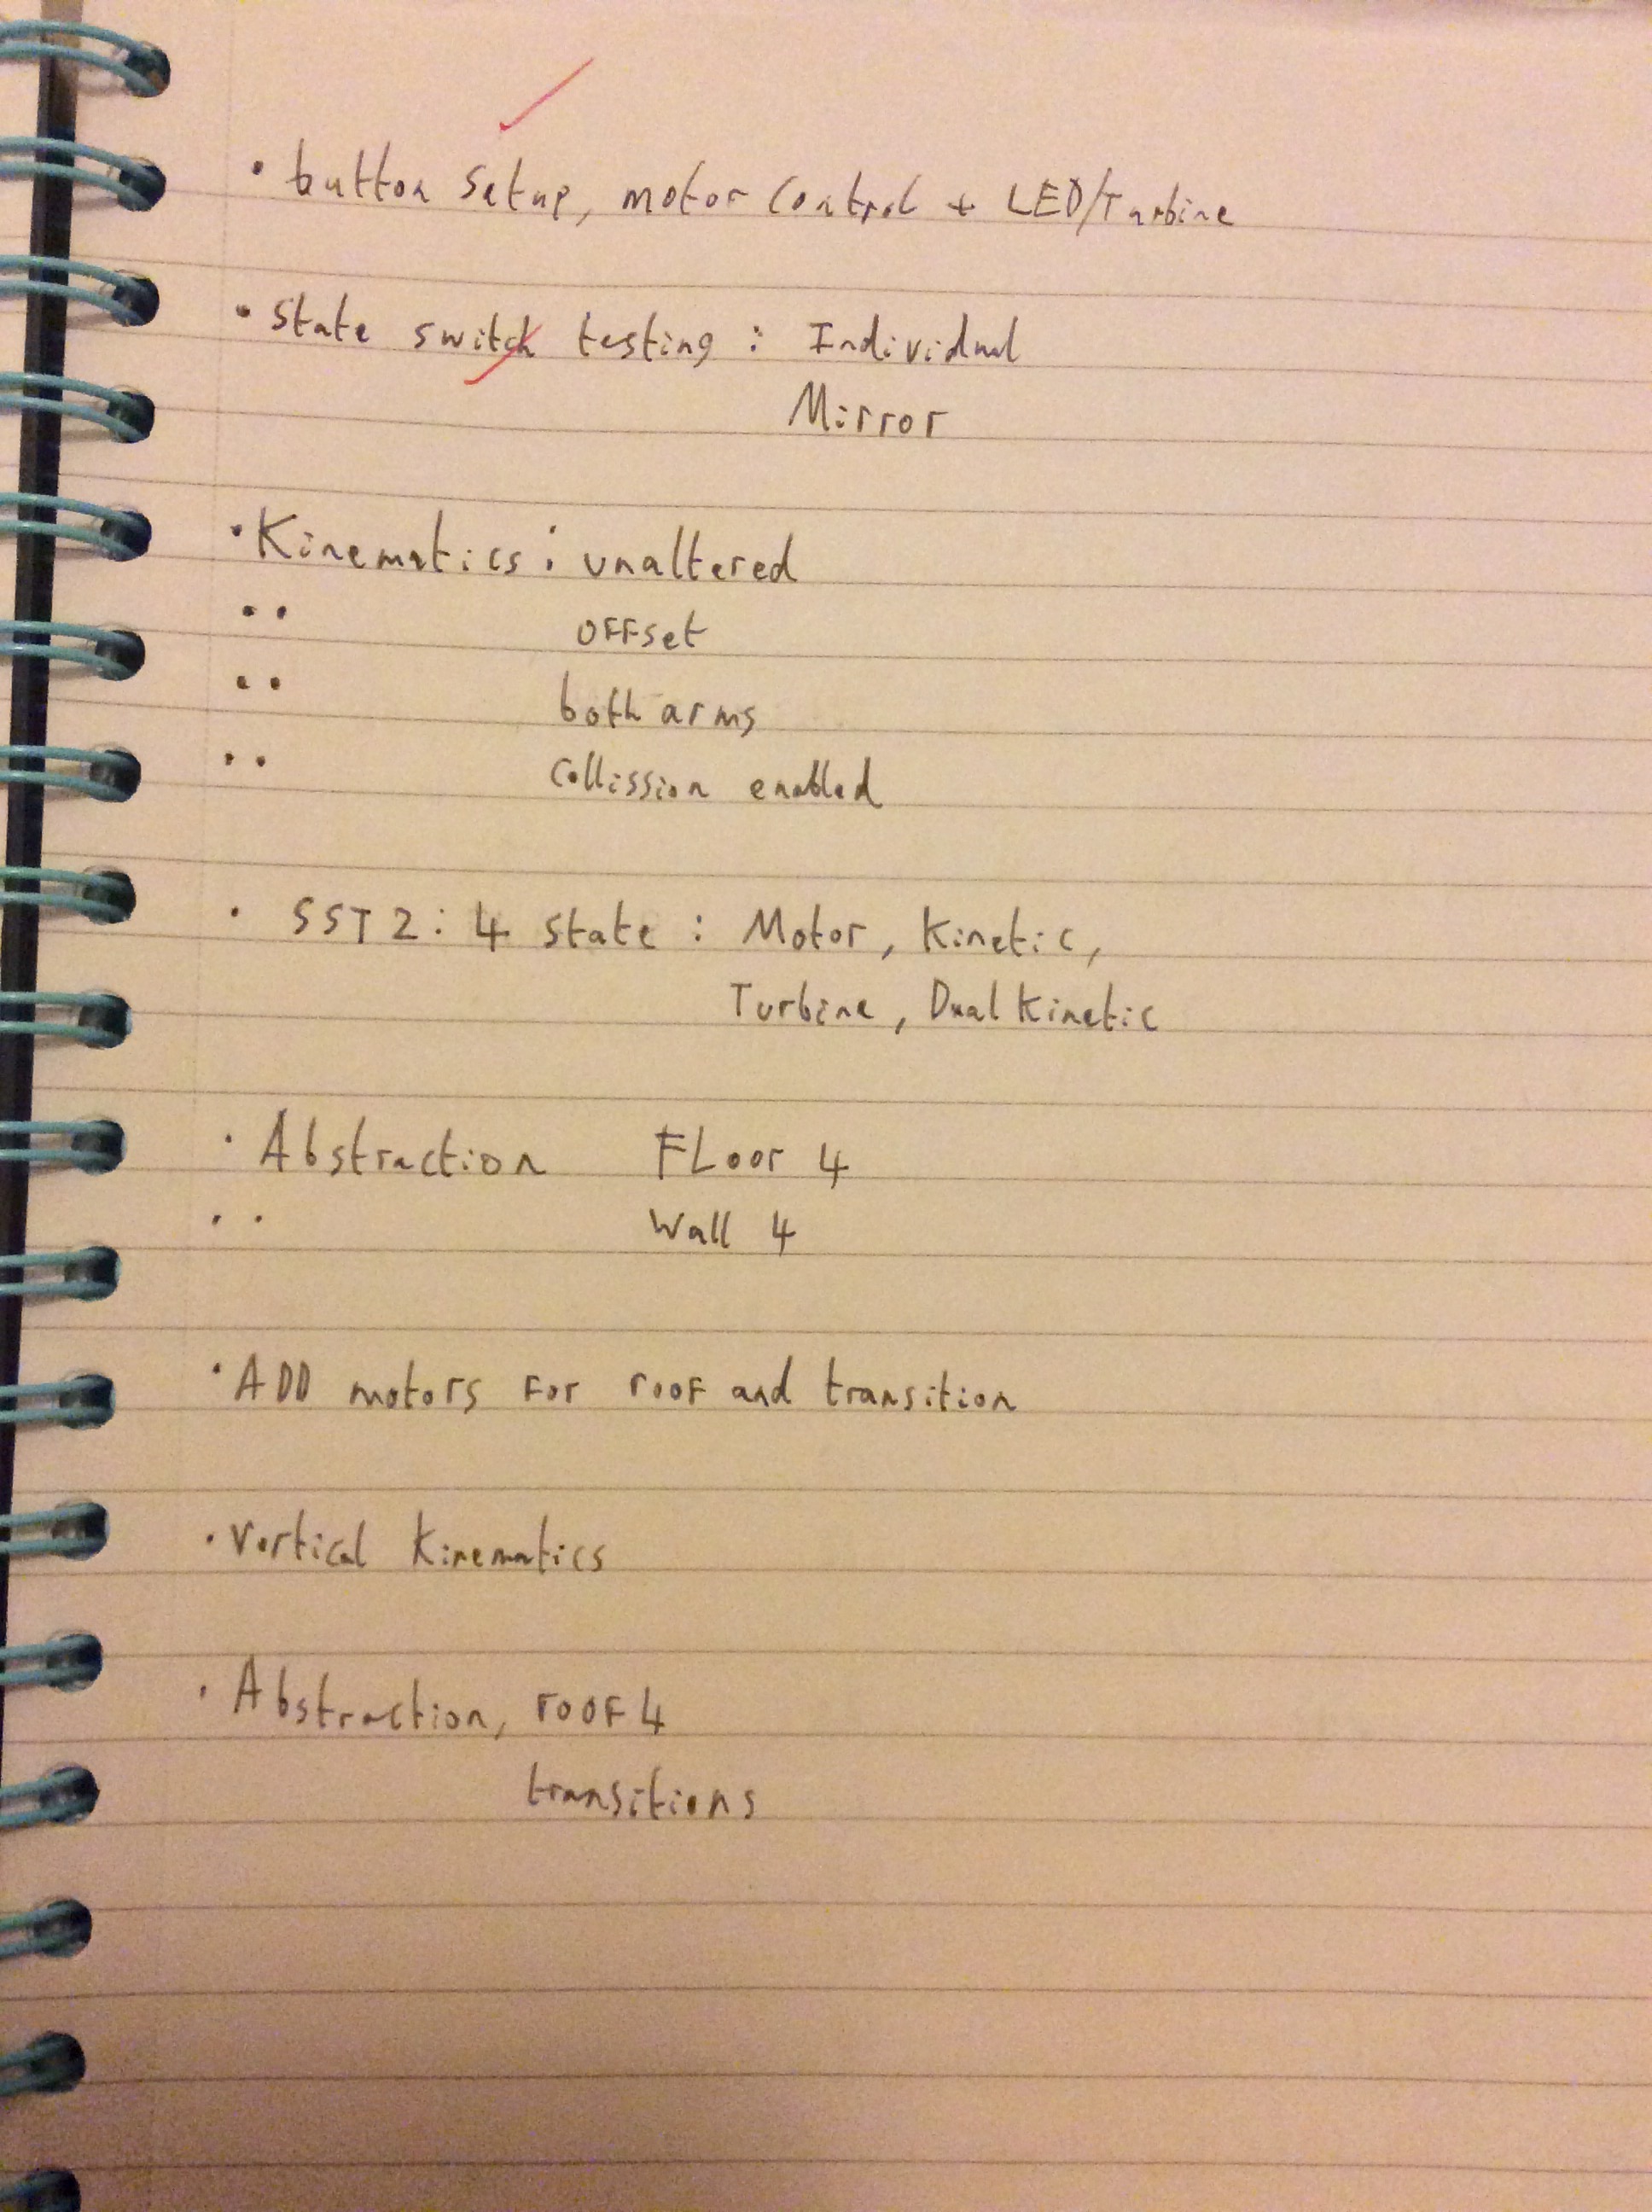 • button setup, motor control + LED/Turbine
• state switch testing : Individual
Mirror
• Kinematics : unaltered
• • OFFset
• • both arms
• • Collission enabled
• SST 2 : 4 state : Motor, Kinetic,
Turbine, Dual Kinetic
• Abstraction FLoor 4
• • Wall 4
• ADD motors For rooF and transition
• Vertical Kinematics
• Abstraction, rooF 4
transitions